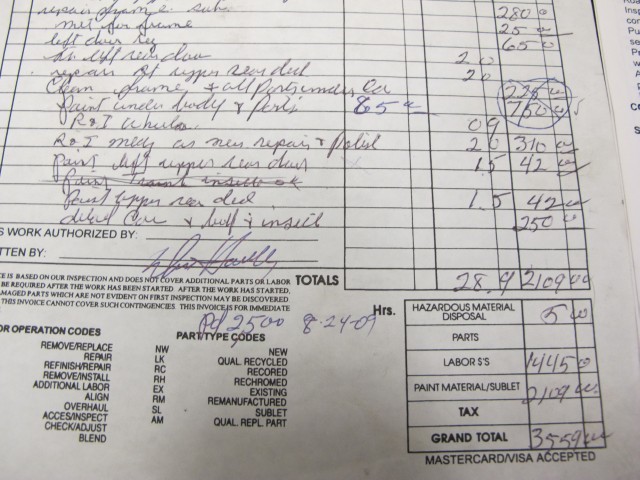 repair frame sub. 280 00
met for frame 25 00
left door 65 00
left rear door 2 0
repair of upper rear bed 2 0
Clean frame & all parts under 225 00
Paint under body & parts 65 00 750 00
R&I wheels 09
R&I as new repair & Polish 2 0 310 00
Paint left upper rear door 1 5 42 00
Paint
Paint upper rear bed 1.5 42 00
detail car & buff & inside 250 00
S WORK AUTHORIZED BY:
TTEN BY:
CE IS BASED ON OUR INSPECTION AND DOES NOT COVER ADDITIONAL PARTS OR LABOR
BE REQUIRED AFTER THE WORK HAS BEEN STARTED. AFTER THE WORK HAS STARTED,
AMAGED PARTS WHICH ARE NOT EVIDENT ON FIRST INSPECTION MAY BE DISCOVERED
THIS INVOICE CANNOT COVER SUCH CONTINGENCIES THIS INVOICE IS FOR IMMEDIATE
TOTALS 28.9 2109 00
Pd 2500 8-24-09
Hrs.
OR OPERATION CODES
REMOVE/REPLACE
REPAIR
REFINISH/REPAIR
REMOVE/INSTALL
ADDITIONAL LABOR
ALIGN
OVERHAUL
ACCES/INSPECT
CHECK/ADJUST
BLEND
PART/TYPE CODES
NW NEW
LK QUAL. RECYCLED
RC RECORED
RH RECHROMED
EX EXISTING
RM REMANUFACTURED
SL SUBLET
AM QUAL. REPL. PART
HAZARDOUS MATERIAL
DISPOSAL 5 00
PARTS
LABOR $'S 1445 00
PAINT MATERIAL/SUBLET 2109 00
TAX
GRAND TOTAL 3559 00
MASTERCARD/VISA ACCEPTED